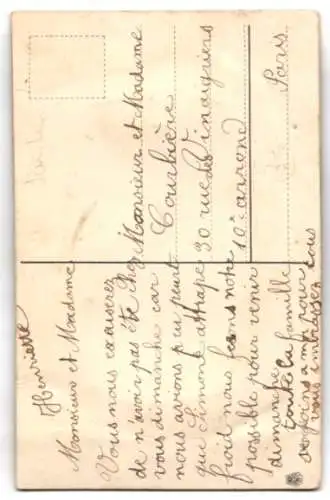 Monsieur et Madame
Courbière
30 rue des Vinaigriers
10e arrond
Paris
Monsieur et Madame
Vous nous excuserez
de n'avoir pas été chez
vous dimanche car
nous avons eu peur
que Simone attrape
froid nous ferons notre
possible pour venir
dimanche
toute la famille
se joins a moi pour vous
embrasser
Henriette